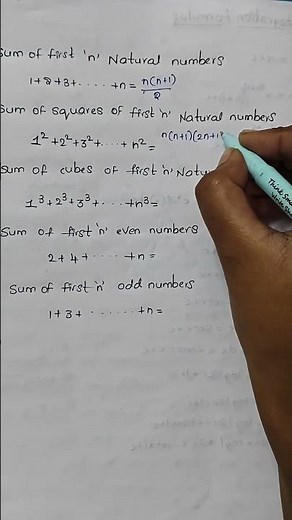 Sum of first 'n' Natural numbers
1+2+3+ ...... +n = n(n+1)/2
Sum of squares of first 'n' Natural numbers
1²+2²+3²+ ..... + n² = n(n+1)(2n+1
Sum of cubes of first 'n'
1³+2³+3³+ ..... +n³=
Sum of first 'n' even numbers
2+4+ ...... +n=
Sum of first 'n' odd numbers
1+3+ ....... +n=